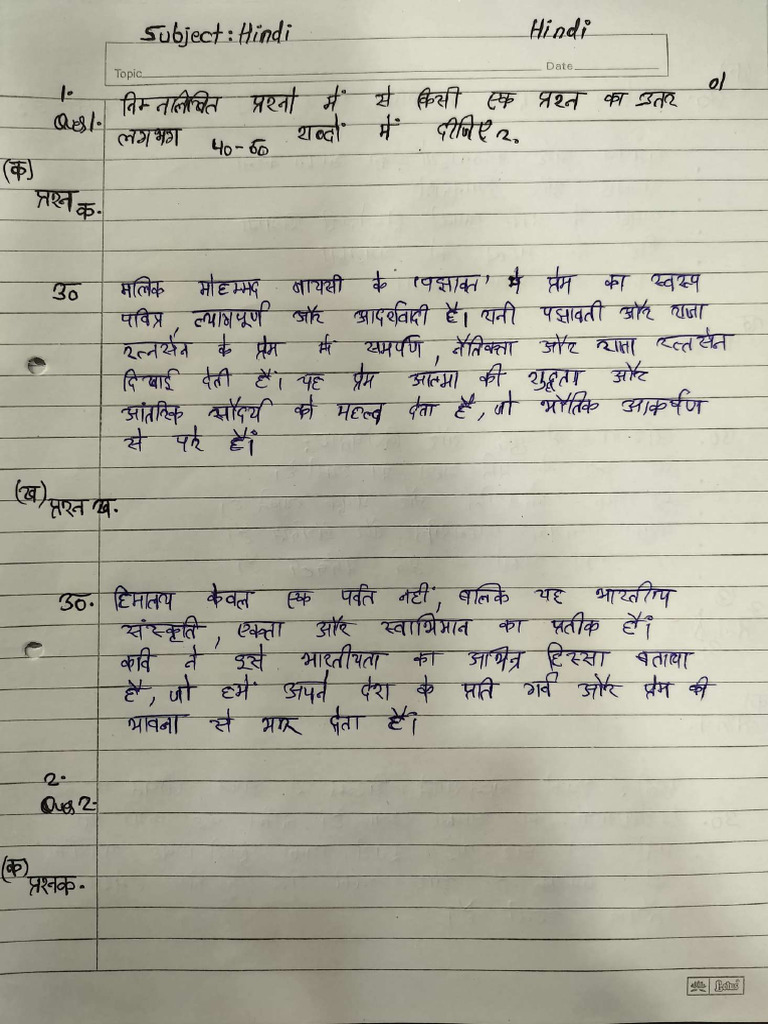 Subject: Hindi Hindi
Topic Date
1. निम्नलिखित प्रश्नो में से किसी एक प्रश्न का उतर 01
Ques1. लगभग 40-60 शब्दों में दीजिए
(क)
प्रश्न क.
उ० मलिक मोहम्मद जायसी के 'पद्मावत' मे प्रेम का स्वरूप
पवित्र, त्यागपूर्ण और आदर्शवादी है। रानी पद्मावती और राजा
रत्नसेन के प्रेम में समर्पण, नैतिकता और राजा रत्नसेन
दिखाई देती हैं। यह प्रेम आत्मा की शुद्धता और
आंतरिक सौंदर्य को महत्व देता है, जो भौतिक आकर्षण
से परे है।
(ख)
प्रश्न ख.
उ०. हिमालय केवल एक पर्वत नहीं, बल्कि यह भारतीय
संस्कृति, एकता और स्वाभिमान का प्रतीक है।
कवि ने इसे भारतीयता का अभिन्न हिस्सा बताया
है, जो हमें अपने देश के प्रति गर्व और प्रेम की
भावना से भर देता है।
2.
Ques 2.
(क)
प्रश्नक.